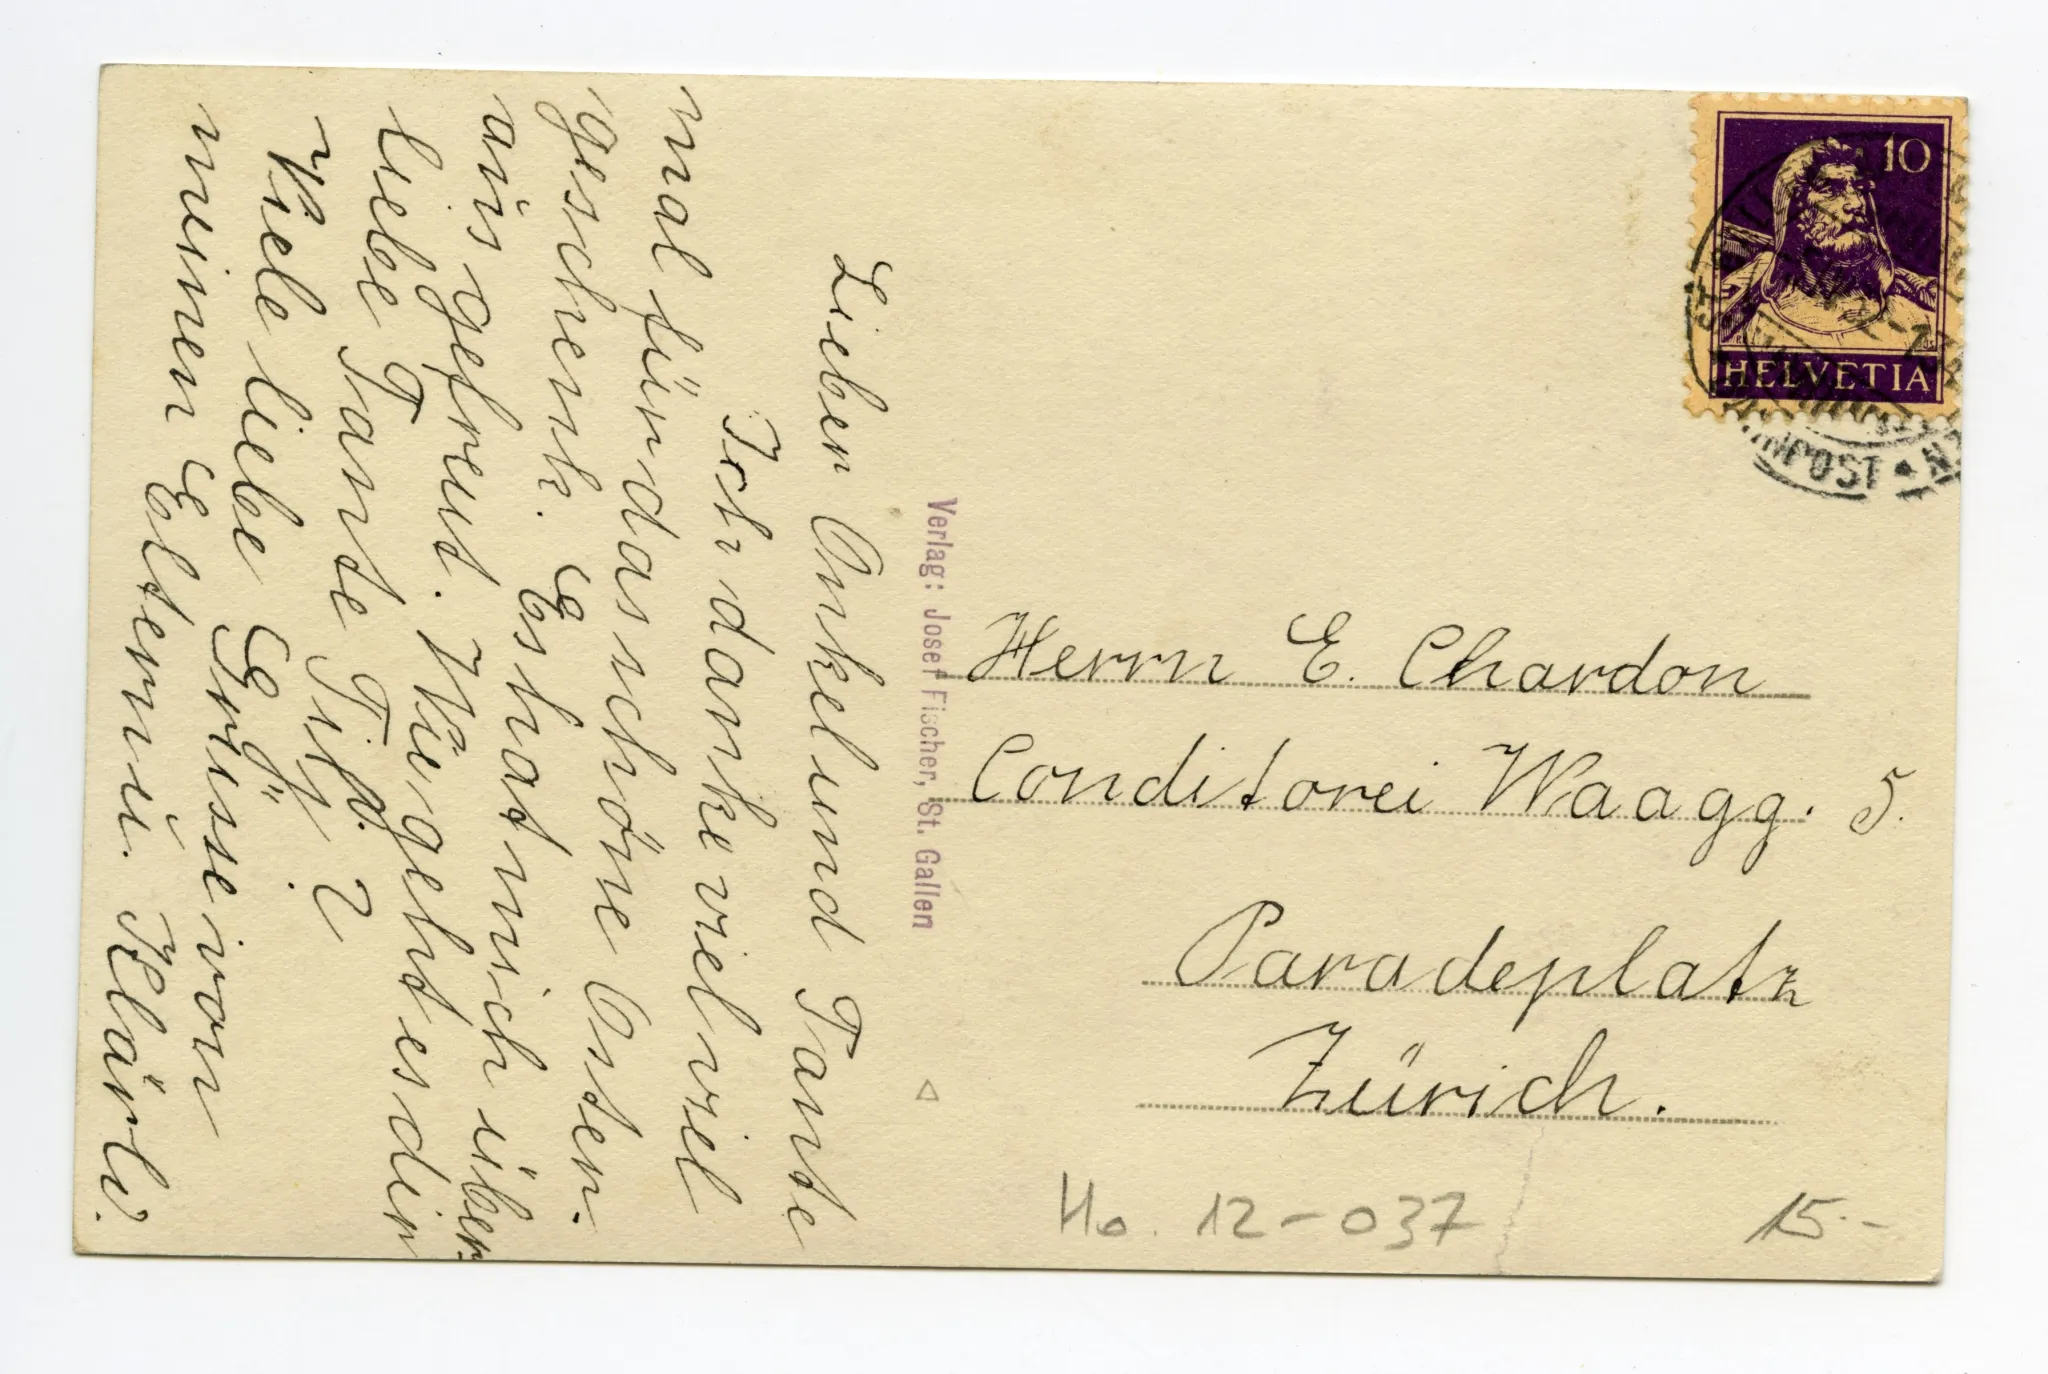 Lieber Onkel und Tante
Ich danke viel viel
mal für das schöne Osten-
geschenk. Es hat mich über-
aus gefreut. Wie geht es dir
liebe Tante
Viele liebe Grüsse von
meinen Elternu. Klärli.
Verlag: Josef Fischer, St. Gallen
10
HELVETIA
Herrn E. Chardon
Conditorei Waagg. 5.
Paradeplatz
Zürich.
Ho. 12-037
15.-